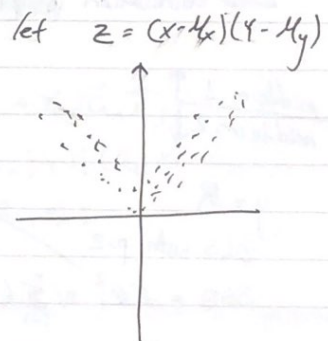 let z = (x-μx)(Y-μy)